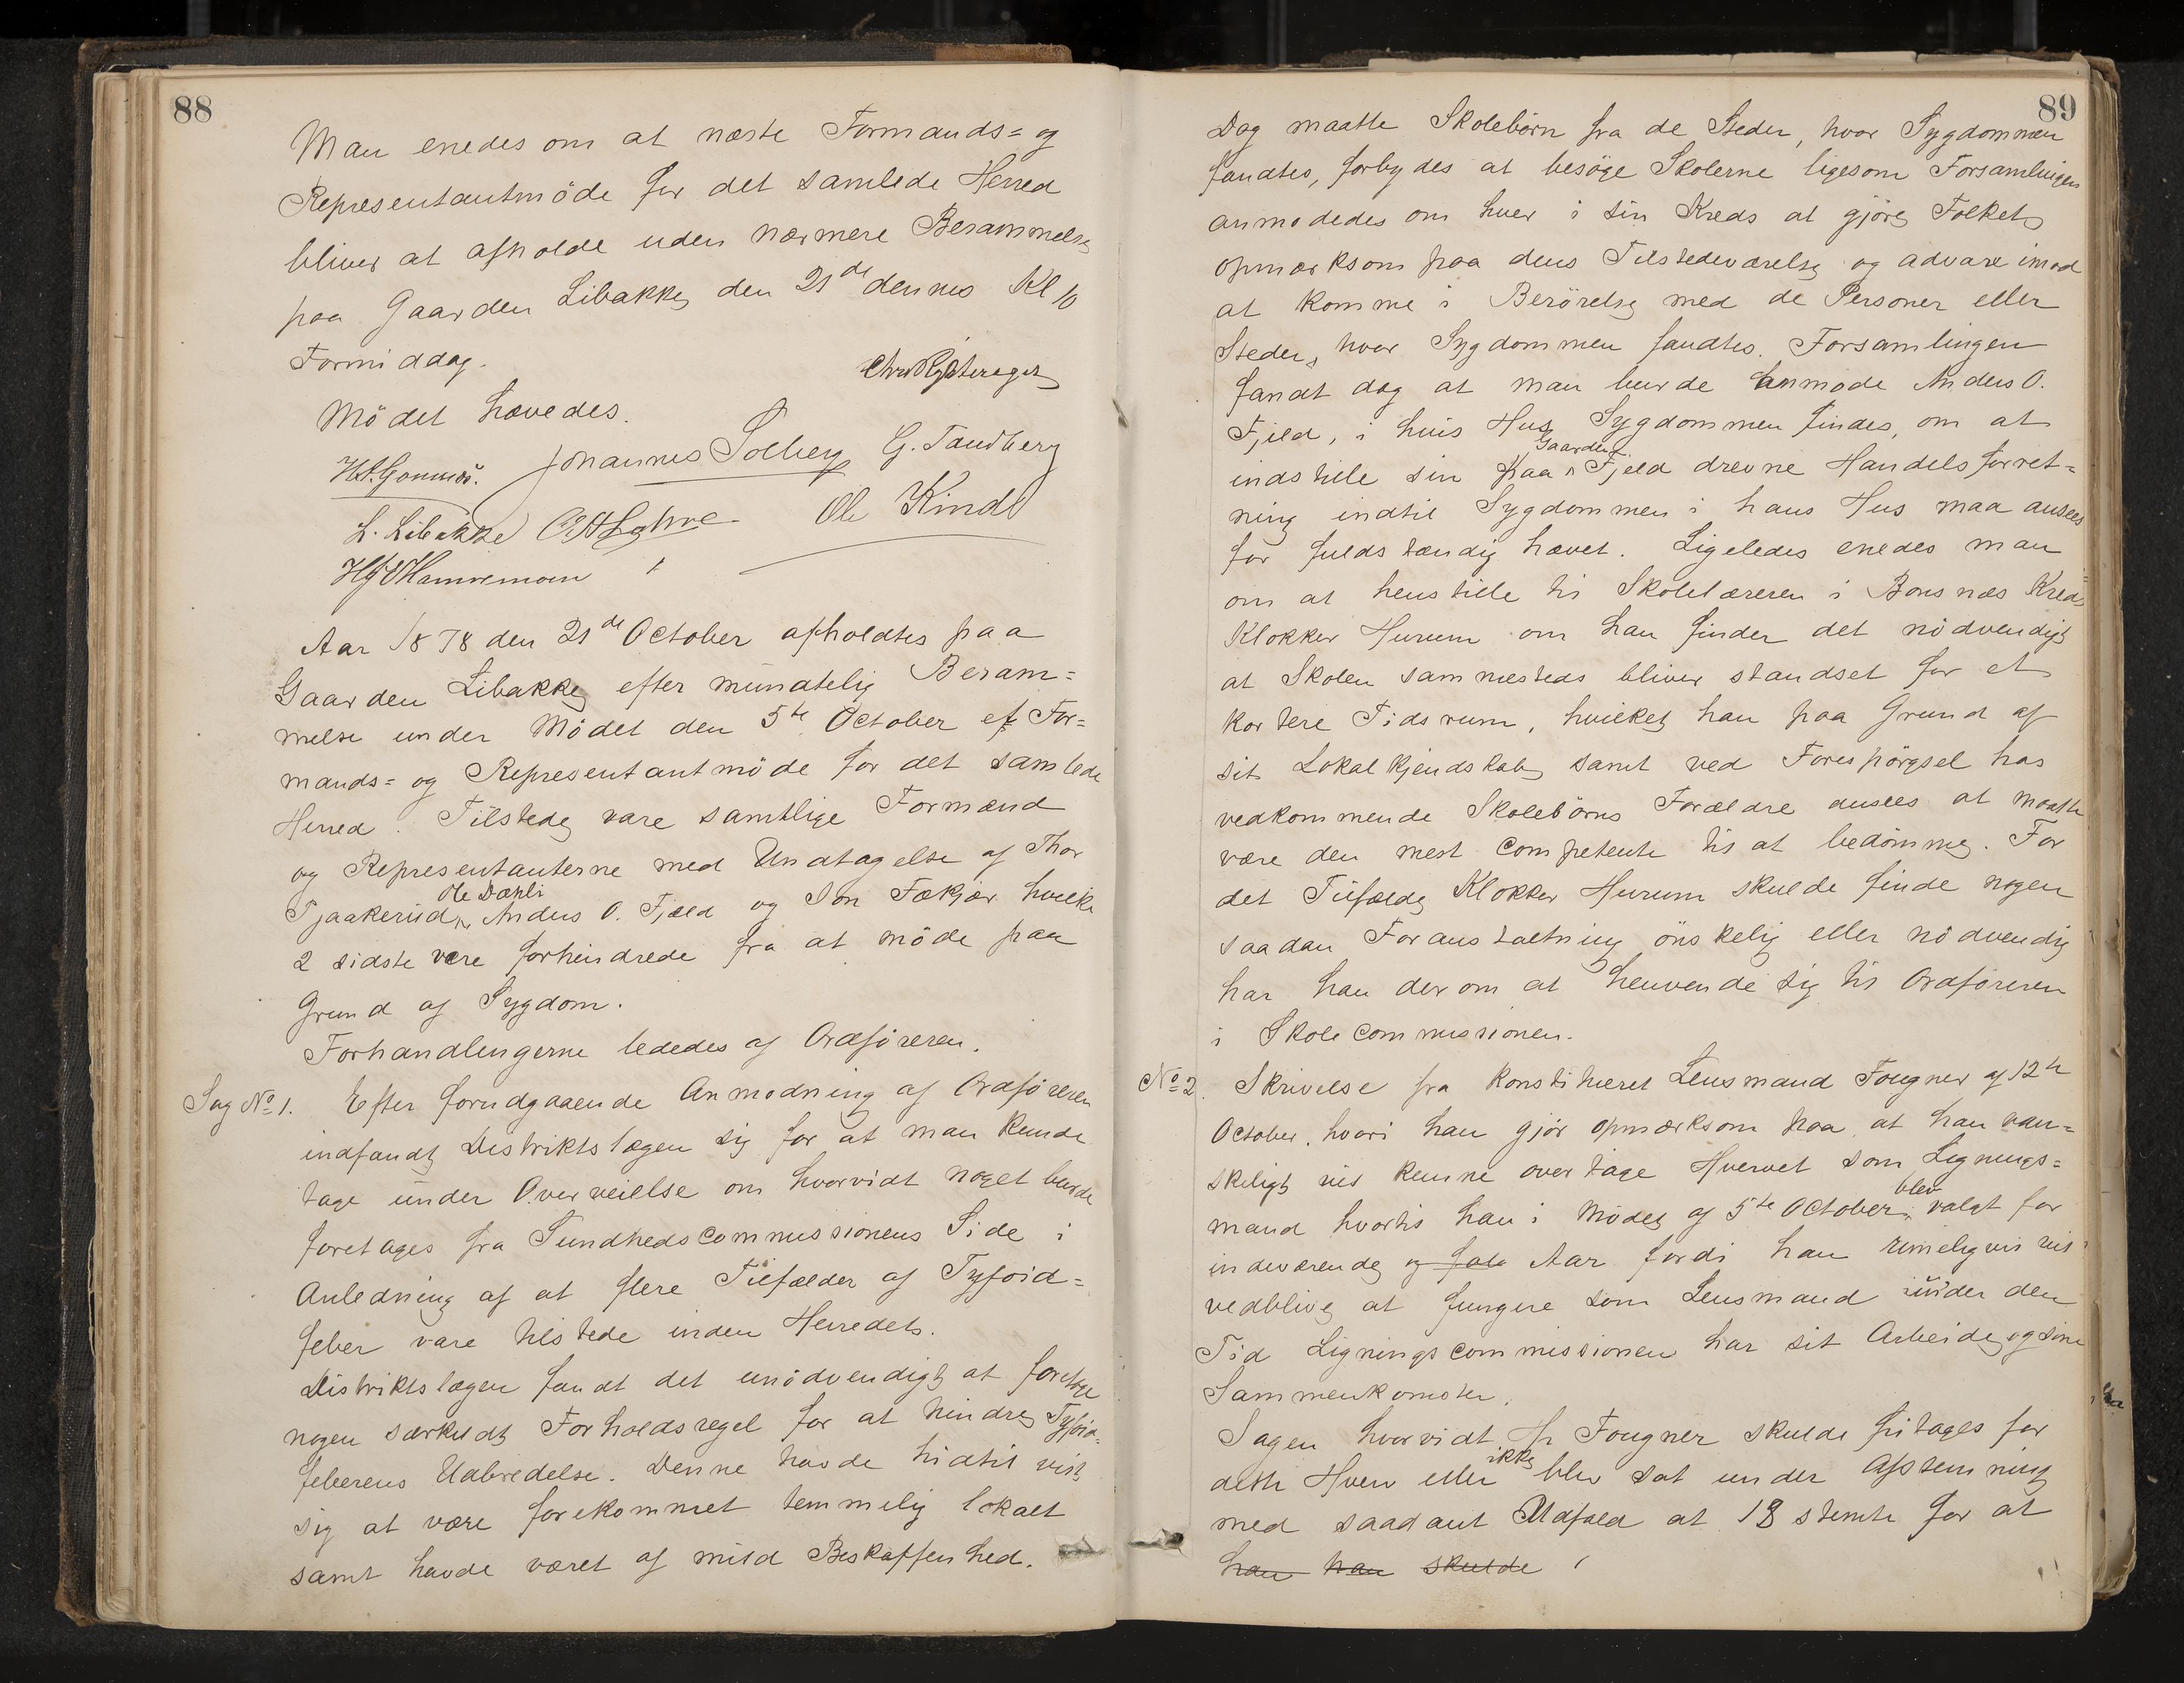 88
Man enedes om at næste Formands= og
Representantmöde for det samlede Herred
bliver at afholde uden nærmere Berammelse
paa Gaarden Libakke den 21de dennes Kl 10
Formiddag.
Mödet hævedes.
Johannes Solberg G. Tandberg
L. Libakke Ole Kind
Aar 1878 den 21de October afholdtes paa
Gaarden Libakke efter mundtelig Beram=
melse under Mödet den 5te October et For=
mands= og Representantmöde for det samlede
Herred. Tilstede vare samtlige Formænd
og Representanterne med Undtagelse af Thor
Ole Dæhli
Tjaakerud, Anders O. Fjeld og Jon Fækjær hvilke
2 sidste vare forhindrede fra at möde paa
Grund af Sygdom.
Forhandlingerne lededes af Ordföreren.
Sag No 1. Efter forudgaaende Anmodning af Ordföreren
indfandt Distriktslægen sig for at man kunde
tage under Overveielse om hvorvidt noget burde
foretages fra Sundhedscommissionens Side i
Anledning af at flere Tilfælder af Tyfoid=
feber vare tilstede inden Herredet.
Distriktslægen fandt det unödvendigt at foretage
nogen særskildt Forholdsregel for at hindre Tyfoid=
feberens Udbredelse. Denne havde hidtil vist
sig at være forekommet temmelig lokalt
samt havde været af mild Beskaffenhed.
89
Dog maatte Skolebörn fra de Steder, hvor Sygdommen
fandtes, forbydes at besöge Skolerne ligesom Forsamlingen
anmodedes om hver i sin Kreds at gjöre Folket
opmærksom paa dens Tilstedeværelse og advare imod
at komme i Berörelse med de Personer eller
Steder, hvor Sygdommen fandtes. Forsamlingen
fandt dog at man burde anmode Anders O.
Fjeld, i hvis Hus Sygdommen findes, om at
Gaarden
indstille sin paa Fjeld drevne Handelsforret=
ning indtil Sygdommen i hans Hus maa ansees
for fuldstændig hævet. Ligeledes enedes man
om at henstille til Skolelæreren i Bönsnæs Kreds
Klokker Hurum om han finder det nödvendigt
at Skolen sammesteds bliver standset for et
kortere Tidsrum, hvilket han paa Grund af
sit Lokalkjendskab samt ved Forespörgsel hos
vedkommende Skolebörns Forældre ansees at maatte
være den mest competente til at bedömme. For
det Tilfælde Klokker Hurum skulde finde nogen
saadan Foranstaltning önskelig eller nödvendig
har han derom at henvende sig til Ordföreren
i Skolecommissionen.
No 2. Skrivelse fra konstitueret Lensmand Fougner af 12te
October, hvori han gjör opmærksom paa at han van=
skeligt vil kunne overtage Hvervet som Lignings=
blev
mand hvortil han i Mödet af 5te October valgt for
indeværende og fole Aar fordi han rimeligvis vil
vedblive at fungere som Lensmand under den
Tid Ligningscommissionen har sit Arbeide og sine
Sammenkomster.
Sagen hvorvidt Hr Fougner skulde fritages for
ikke
dette Hverv eller blev sat under Afstemning
med saadant Udfald at 18 stemte for at
han han skulde